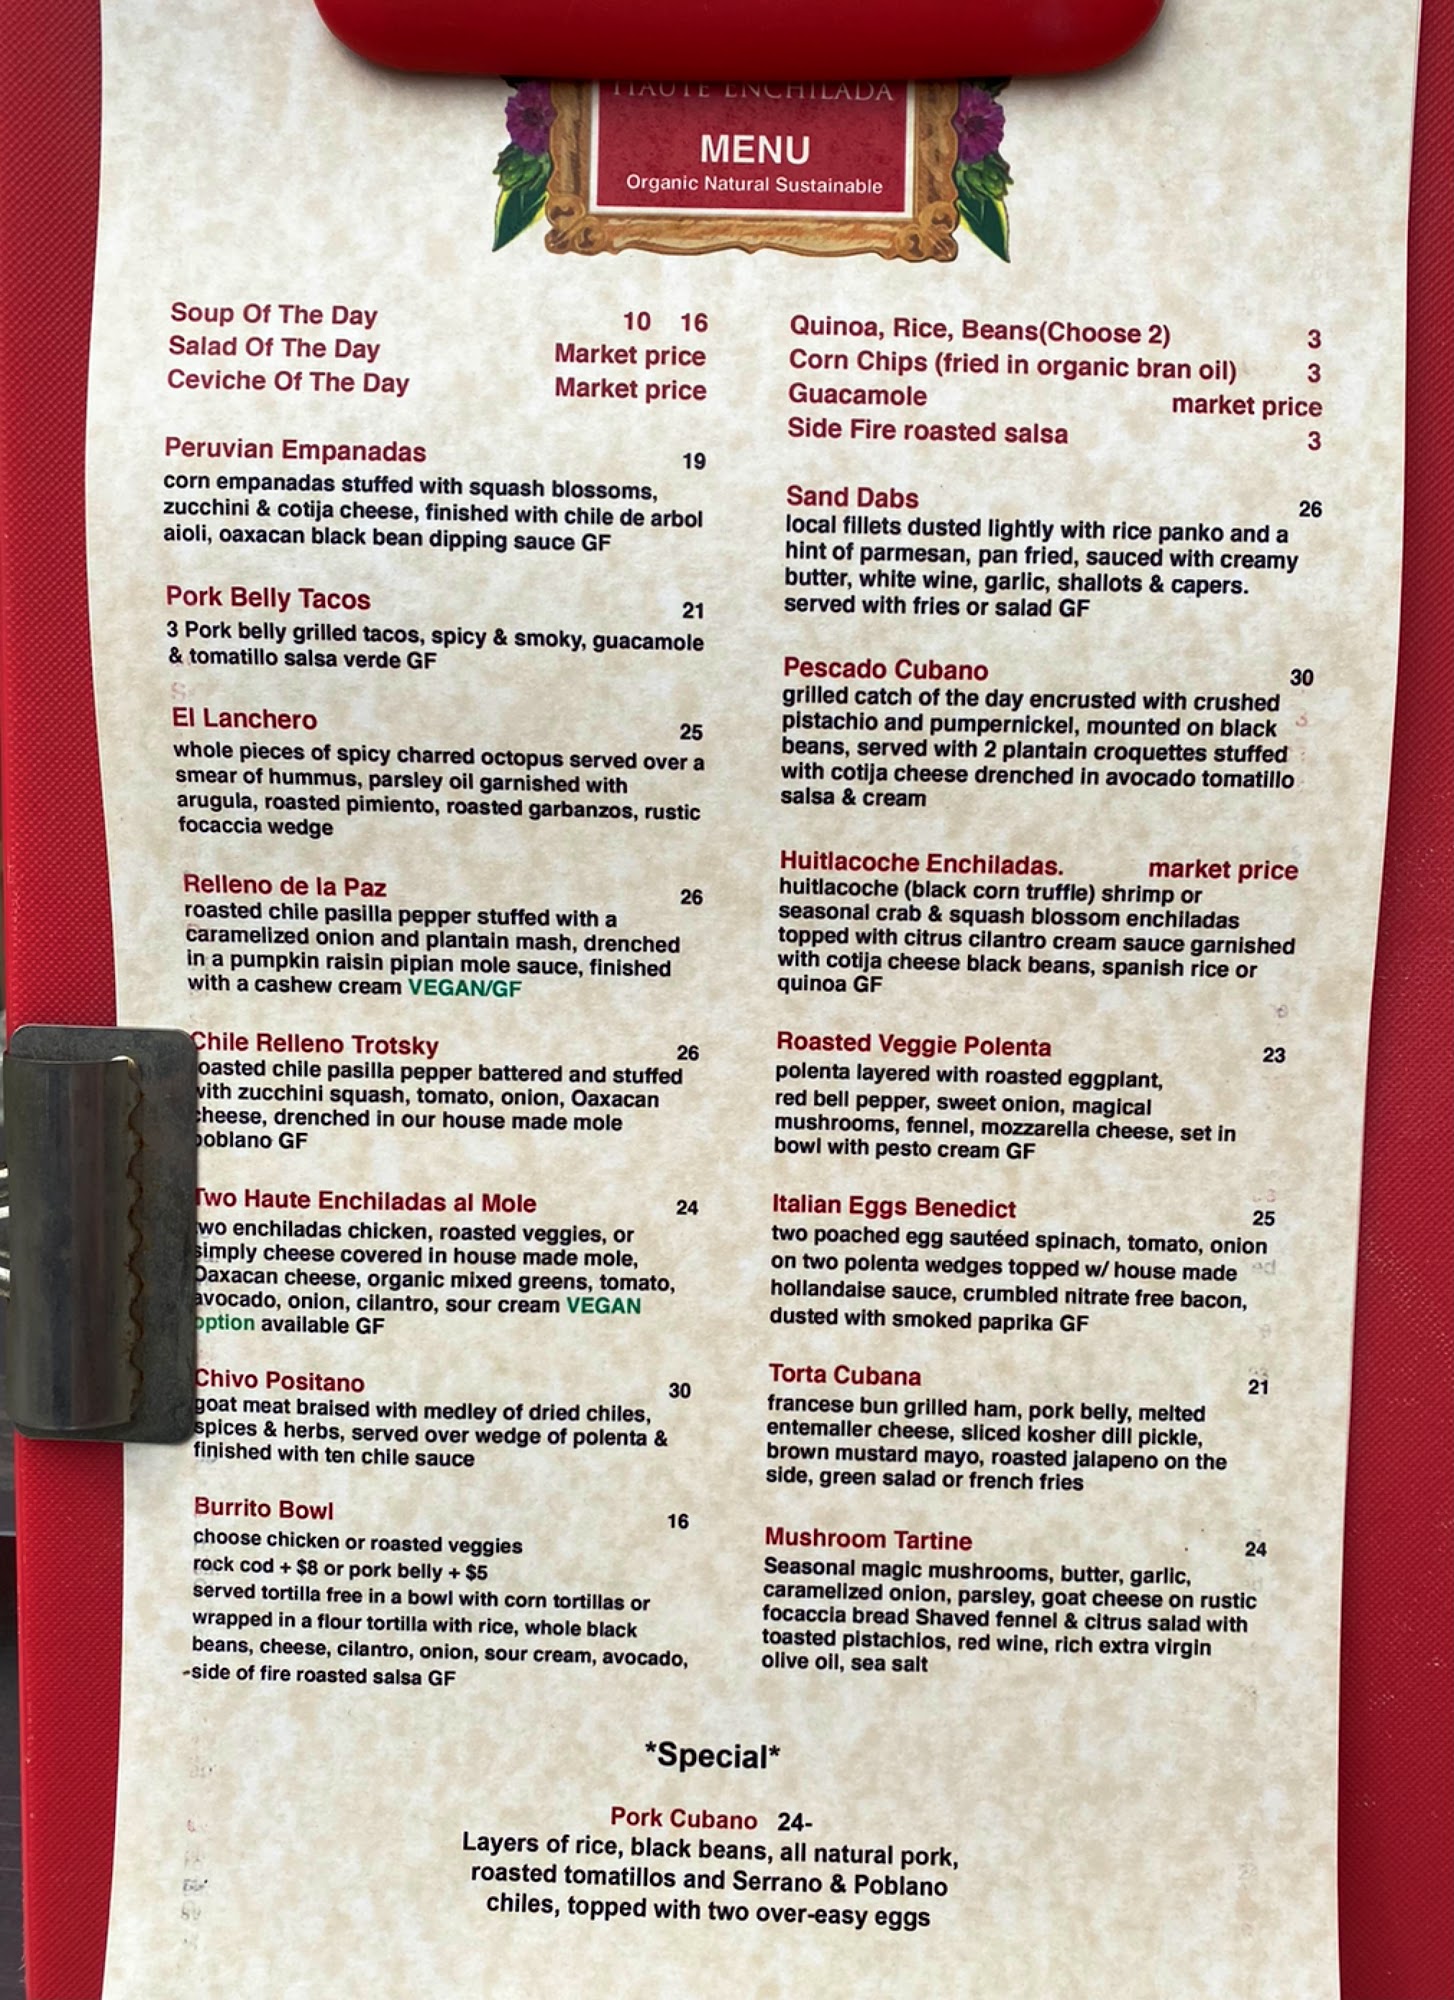 HAUTE ENCHILADA
MENU
Organic Natural Sustainable
Soup Of The Day 10 16
Salad Of The Day Market price
Ceviche Of The Day Market price
Peruvian Empanadas 19
corn empanadas stuffed with squash blossoms,
zucchini & cotija cheese, finished with chile de arbol
aioli, oaxacan black bean dipping sauce GF
Pork Belly Tacos 21
3 Pork belly grilled tacos, spicy & smoky, guacamole
& tomatillo salsa verde GF
El Lanchero 25
whole pieces of spicy charred octopus served over a
smear of hummus, parsley oil garnished with
arugula, roasted pimiento, roasted garbanzos, rustic
focaccia wedge
Relleno de la Paz 26
roasted chile pasilla pepper stuffed with a
caramelized onion and plantain mash, drenched
in a pumpkin raisin pipian mole sauce, finished
with a cashew cream VEGAN/GF
Chile Relleno Trotsky 26
oasted chile pasilla pepper battered and stuffed
with zucchini squash, tomato, onion, Oaxacan
cheese, drenched in our house made mole
poblano GF
Two Haute Enchiladas al Mole 24
wo enchiladas chicken, roasted veggies, or
simply cheese covered in house made mole,
Oaxacan cheese, organic mixed greens, tomato,
avocado, onion, cilantro, sour cream VEGAN
option available GF
Chivo Positano 30
goat meat braised with medley of dried chiles,
spices & herbs, served over wedge of polenta &
finished with ten chile sauce
Burrito Bowl 16
choose chicken or roasted veggies
rock cod + $8 or pork belly + $5
served tortilla free in a bowl with corn tortillas or
wrapped in a flour tortilla with rice, whole black
beans, cheese, cilantro, onion, sour cream, avocado,
-side of fire roasted salsa GF
Quinoa, Rice, Beans(Choose 2) 3
Corn Chips (fried in organic bran oil) 3
Guacamole market price
Side Fire roasted salsa 3
Sand Dabs 26
local fillets dusted lightly with rice panko and a
hint of parmesan, pan fried, sauced with creamy
butter, white wine, garlic, shallots & capers.
served with fries or salad GF
Pescado Cubano 30
grilled catch of the day encrusted with crushed
pistachio and pumpernickel, mounted on black
beans, served with 2 plantain croquettes stuffed
with cotija cheese drenched in avocado tomatillo
salsa & cream
Huitlacoche Enchiladas. market price
huitlacoche (black corn truffle) shrimp or
seasonal crab & squash blossom enchiladas
topped with citrus cilantro cream sauce garnished
with cotija cheese black beans, spanish rice or
quinoa GF
Roasted Veggie Polenta 23
polenta layered with roasted eggplant,
red bell pepper, sweet onion, magical
mushrooms, fennel, mozzarella cheese, set in
bowl with pesto cream GF
Italian Eggs Benedict 25
two poached egg sautéed spinach, tomato, onion
on two polenta wedges topped w/ house made
hollandaise sauce, crumbled nitrate free bacon,
dusted with smoked paprika GF
Torta Cubana 21
francese bun grilled ham, pork belly, melted
entemaller cheese, sliced kosher dill pickle,
brown mustard mayo, roasted jalapeno on the
side, green salad or french fries
Mushroom Tartine 24
Seasonal magic mushrooms, butter, garlic,
caramelized onion, parsley, goat cheese on rustic
focaccia bread Shaved fennel & citrus salad with
toasted pistachios, red wine, rich extra virgin
olive oil, sea salt
*Special*
Pork Cubano 24-
Layers of rice, black beans, all natural pork,
roasted tomatillos and Serrano & Poblano
chiles, topped with two over-easy eggs